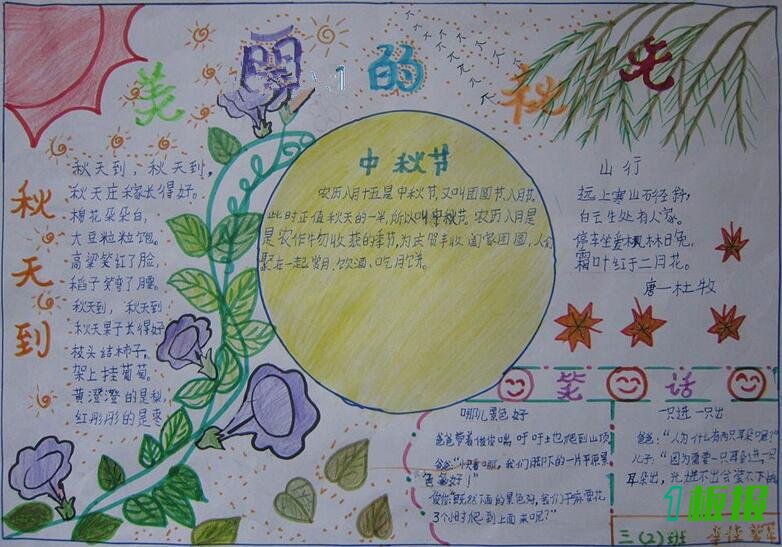 美 的 秋
秋天到
秋天到，秋天到，
秋天庄稼长得好。
棉花朵朵白，
大豆粒粒饱。
高粱笑红了脸，
稻子笑弯了腰。
秋天到，秋天到
秋天果子长得好
枝头结柿子。
架上挂葡萄。
黄澄澄的是梨，
红彤彤的是枣
中秋节
农历八月十五是中秋节，又叫团圆节、八月节。
此时正值秋天的一半，所以叫中秋节。农历八月是
是农作物收获的季节，为庆贺丰收 阖家团圆，人们
聚在一起赏月、饮酒、吃月饼。
山行
远上寒山石径斜，
白云生处有人家。
停车坐爱枫林
霜叶红于二月花。
唐一杜牧
笑话
哪儿景色好
爸爸带着俊俊 吁吁 也爬到山顶
爸爸 ，我们脚下的一片平原景
色多好！"
俊俊："既然下面的景色好，我们干嘛要花
3个小时爬到上面来呢？"
一只进一只出
爸爸："人为什么有两只耳朵呢？"
儿子："因为需要一只耳朵进一只
耳朵出，光进不出会装不下的
三(2)班
1板报